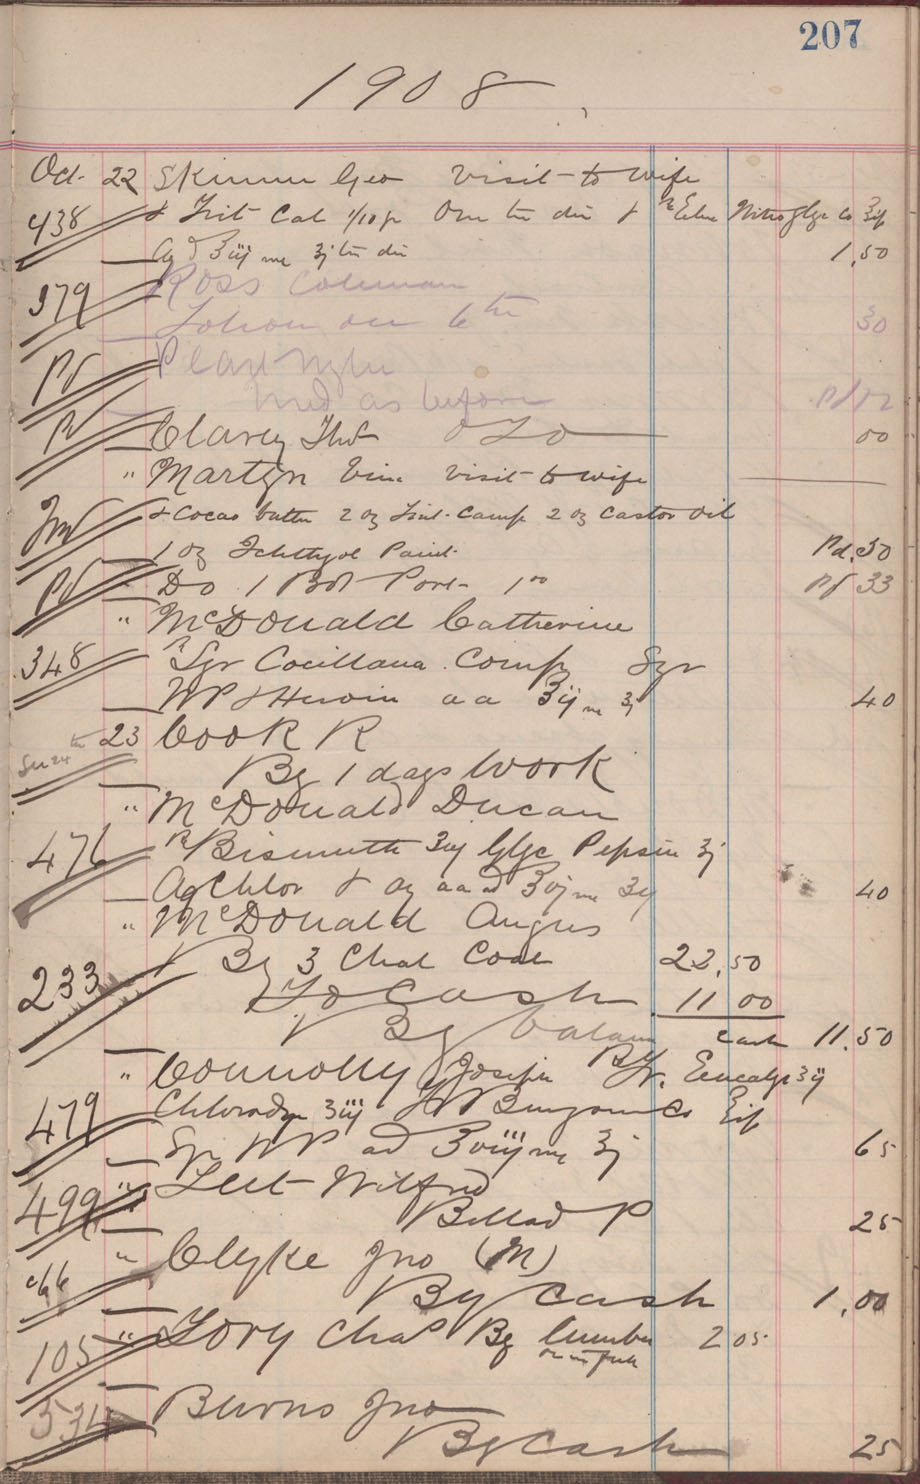 207
1908
Oct. 22 Skinner Geo visit to wife
438 & Trit Cal 1/10 gr One ter die & Nitroglyc Co
Aq ad ʒiij ter die 1.50
379 Ross Coleman
Lotion on 6th 30
Pd
Med as before Pd
Pd Clarey Thos 00
" Martyn visit to wife
& Cocao butter 2 oz Lint. Camp 2 oz Castor Oil
1 oz Ichthyol Paint Pd. 50
Pd Do 1 Bot Port 1 00 Pd 33
" McDonald Catherine
348 Syr Cocillana Comp Syr
W P & Heroin aa ʒij 40
23 Cook R
By 1 days Work
" McDonald Duncan
476 ℞ Bismuth Glyc Pepsin ʒj
Aq Chlor & aq aa ad 40
" McDonald Angus
233 By 3 Chal Coal 22.50
To Cash 11 00
By balance cash 11.50
" Connolly Joseph ℞ Tr. Eucalyp ʒij
479 Chlorodyn ʒiij Tr Benzoin Co
Syr W P ad ʒviij ʒj 65
499 " Wilfred
Bellad P 25
" Clyke Jno (M)
66 By Cash 1.00
105 " Tory Chas By lumber 2 05
534 Burns Jno
By Cash 25